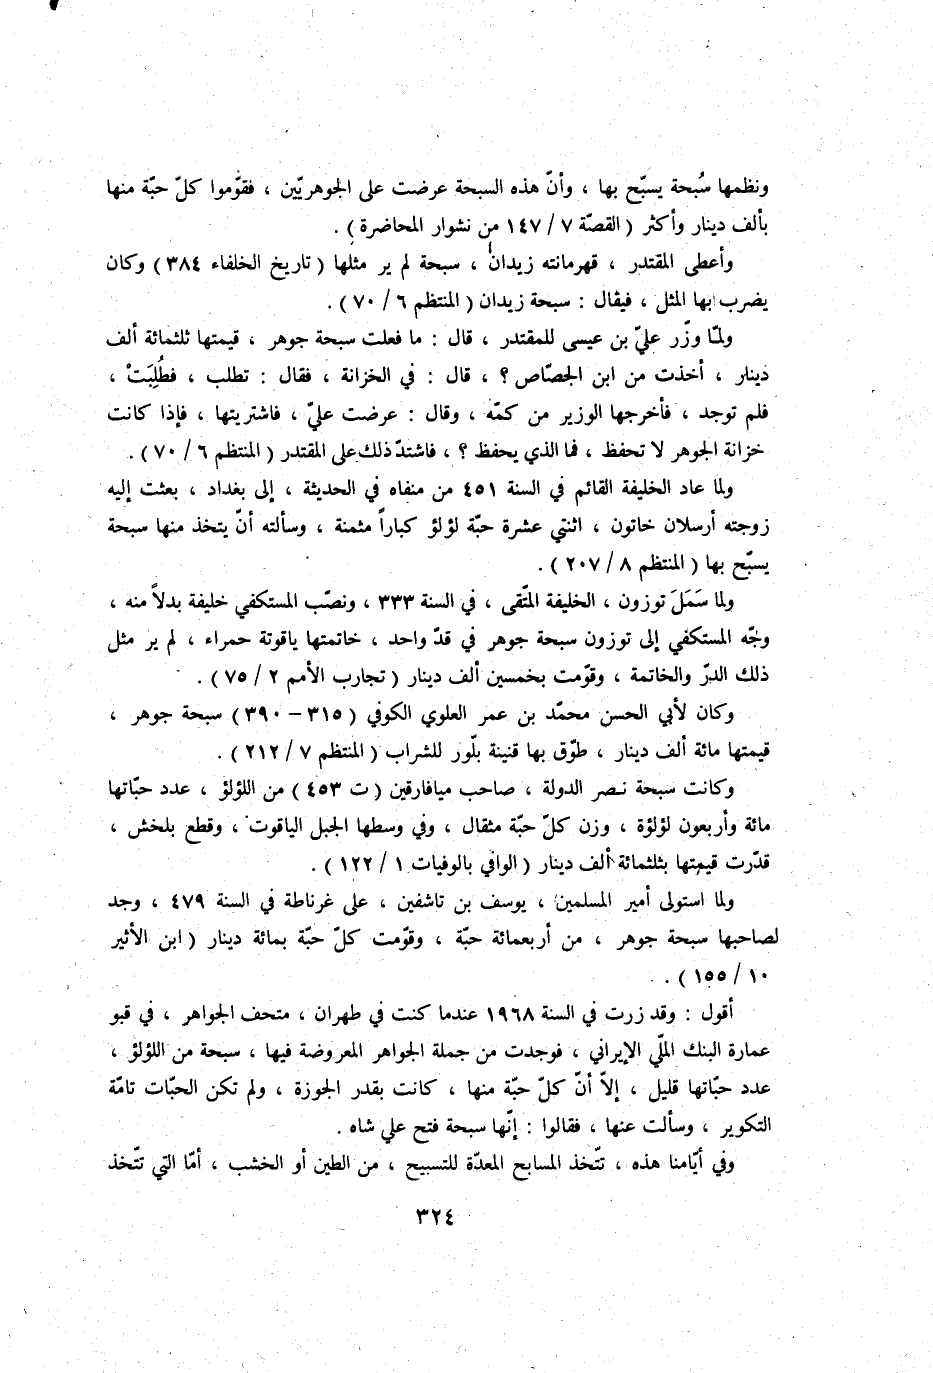 ونظمها سُبحة يسبّح بها ، وأنّ هذه السبحة عرضت على الجوهريّين ، فقوّموا كلّ حبّة منها
بألف دينار وأكثر ( القصّة ٧ / ١٤٧ من نشوار المحاضرة ) .
وأعطى المقتدر ، قهرمانته زيدان ، سبحة لم ير مثلها ( تاريخ الخلفاء ٣٨٤ ) وكان
يضرب بها المثل ، فيقال : سبحة زيدان ( المنتظم ٦ / ٧٠ ) .
ولمّا وزّر عليّ بن عيسى للمقتدر ، قال : ما فعلت سبحة جوهر ، قيمتها ثلثمائة ألف
دينار ، أخذت من ابن الجصّاص ؟ ، قال : في الخزانة ، فقال : تطلب ، فطُلِبَتْ ،
فلم توجد ، فأخرجها الوزير من كمّه ، وقال : عرضت عليّ ، فاشتريتها ، فإذا كانت
خزانة الجوهر لا تحفظ ، فما الذي يحفظ ؟ ، فاشتدّ ذلك على المقتدر ( المنتظم ٦ / ٧٠ ) .
ولما عاد الخليفة القائم في السنة ٤٥١ من منفاه في الحديثة ، إلى بغداد ، بعثت إليه
زوجته أرسلان خاتون ، اثنتي عشرة حبّة لؤلؤ كباراً مثمنة ، وسألته أنّ يتخذ منها سبحة
يسبّح بها ( المنتظم ٨ / ٢٠٧ ) .
ولما سَمَلَ توزون ، الخليفة المتّقى ، في السنة ٣٣٣ ، ونصّب المستكفي خليفة بدلاً منه ،
وجّه المستكفي إلى توزون سبحة جوهر في قدّ واحد ، خاتمتها ياقوتة حمراء ، لم ير مثل
ذلك الدرّ والخاتمة ، وقوّمت بخمسين ألف دينار ( تجارب الأمم ٢ / ٧٥ ) .
وكان لأبي الحسن محمّد بن عمر العلوي الكوفي ( ٣١٥ – ٣٩٠ ) سبحة جوهر ،
قيمتها مائة ألف دينار ، طوّق بها قنينة بلّور للشراب ( المنتظم ٧ / ٢١٢ ) .
وكانت سبحة نصر الدولة ، صاحب ميافارقين ( ت ٤٥٣ ) من اللؤلؤ ، عدد حبّاتها
مائة وأربعون لؤلؤة ، وزن كلّ حبّة مثقال ، وفي وسطها الجبل الياقوت ، وقطع بلخش ،
قدّرت قيمتها بثلثمائة ألف دينار ( الوافي بالوفيات ١ / ١٢٢ ) .
ولما استولى أمير المسلمين ، يوسف بن تاشفين ، على غرناطة في السنة ٤٧٩ ، وجد
لصاحبها سبحة جوهر ، من أربعمائة حبّة ، وقوّمت كلّ حبّة بمائة دينار ( ابن الأثير
١٠ / ١٥٥ ) .
أقول : وقد زرت في السنة ١٩٦٨ عندما كنت في طهران ، متحف الجواهر ، في قبو
عمارة البنك الملّي الإيراني ، فوجدت من جملة الجواهر المعروضة فيها ، سبحة من اللؤلؤ ،
عدد حبّاتها قليل ، إلاّ أنّ كلّ حبّة منها ، كانت بقدر الجوزة ، ولم تكن الحبّات تامّة
التكوير ، وسألت عنها ، فقالوا : إنّها سبحة فتح علي شاه .
وفي أيّامنا هذه ، تتّخذ المسابح المعدّة للتسبيح ، من الطين أو الخشب ، أمّا التي تتّخذ
٣٢٤